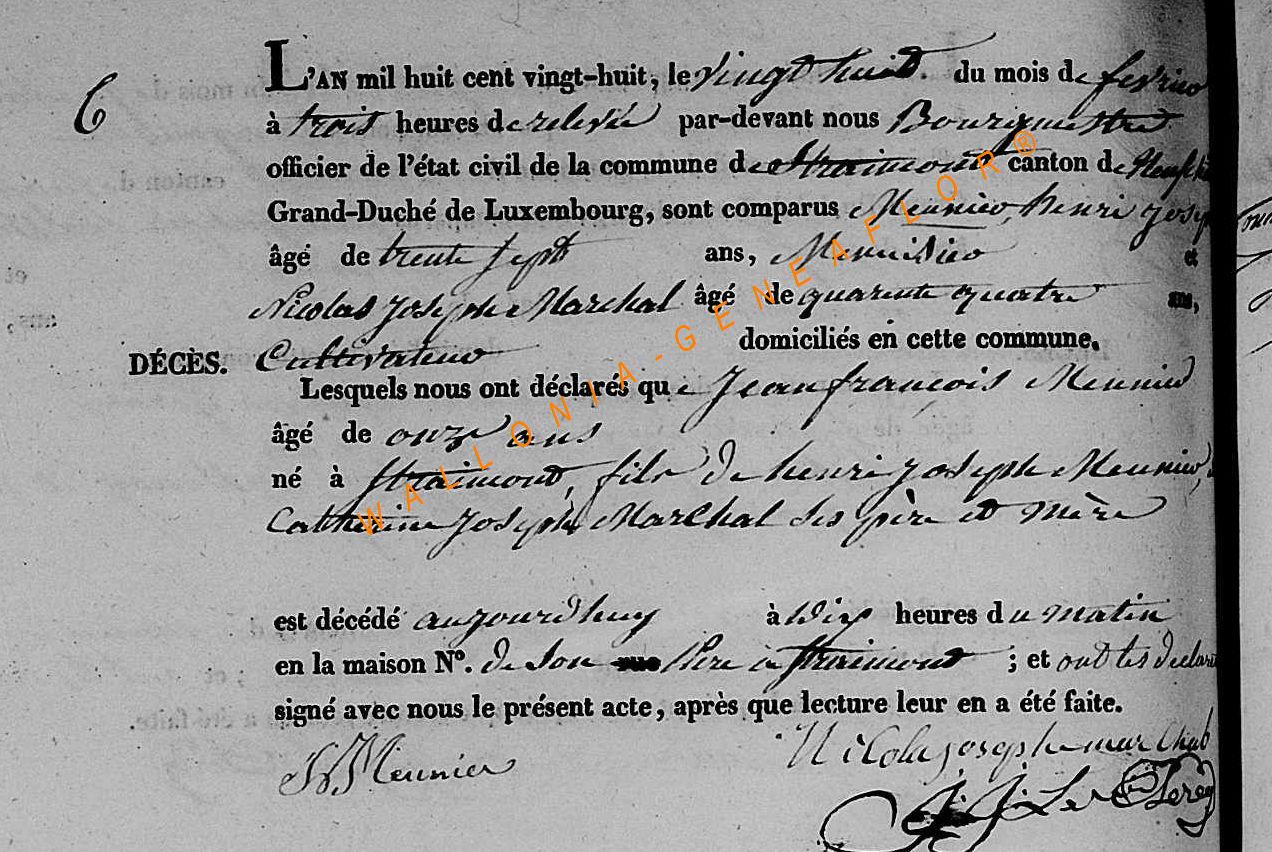 6
L'AN mil huit cent vingt-huit, le vingt huit du mois de fevrier
à trois heures de relevée par-devant nous Bourgmestre
officier de l'état civil de la commune de Straimont canton de
Grand-Duché de Luxembourg, sont comparus Meunier, henri Josep
âgé de trente sept ans, Menuisier et
Nicolas Joseph Marchal âgé de quarente quatre ans,
Cultivateur domiciliés en cette commune.
DÉCÈS.
Lesquels nous ont déclarés que Jean françois Meunier
âgé de onze ans
né à Straimont, fils de henri Joseph Meunier,
Catherine Joseph Marchal ses père et mère
est décédé aujourdhuy à dix heures du matin
en la maison N°. de son rue Père à Straimont ; et ont les declarants
signé avec nous le présent acte, après que lecture leur en a été faite.
hJ Meunier
Nicolas joseph marchal
WALLONIA-GENEAFLOR®